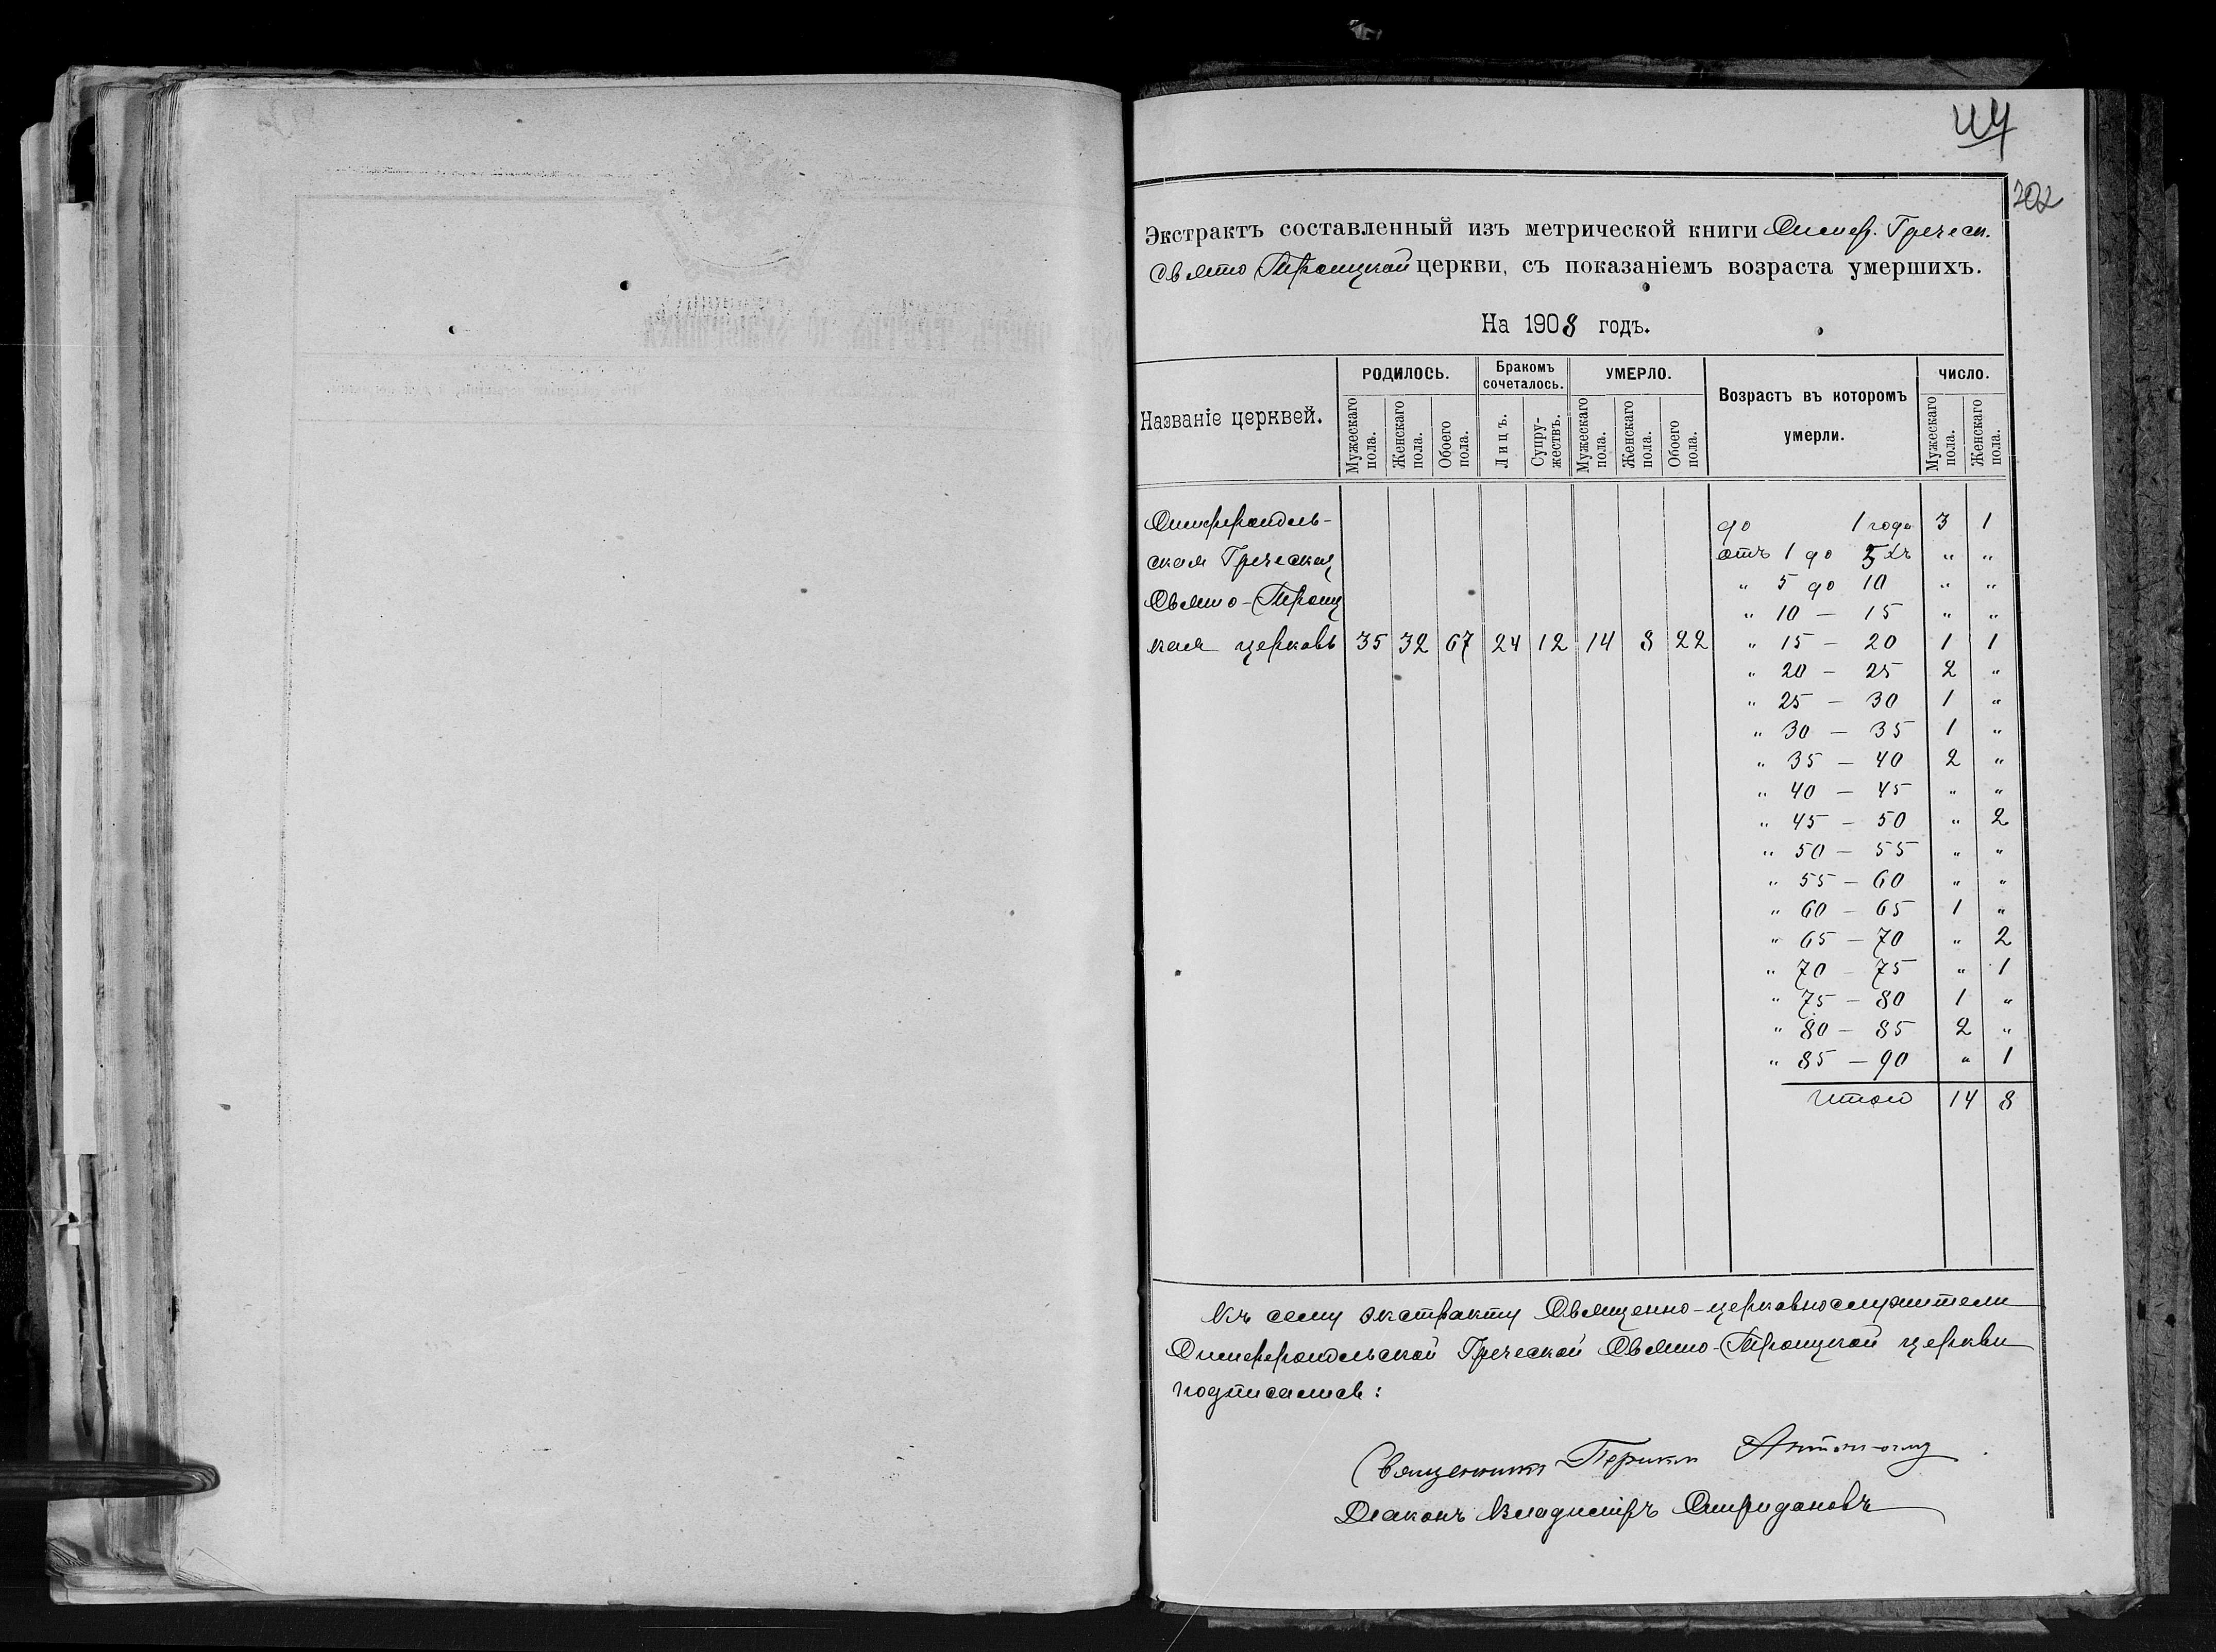 44
202
Экстрактъ составленный изъ метрической книги Симф. Греческ.
Свято Троицкой церкви, съ показаніемъ возраста умершихъ.
На 1908 годъ.
Названіе церквей.
РОДИЛОСЬ.
Мужескаго пола.
Женскаго пола.
Обоего пола.
Бракомъ сочеталось.
Лицъ.
Супружествъ.
УМЕРЛО.
Мужескаго пола.
Женскаго пола.
Обоего пола.
Возрастъ въ которомъ умерли.
ЧИСЛО.
Мужескаго пола.
Женскаго пола.
Симферополь-
ская Греческая
Свято-Троиц
кая церковь 35 32 67 24 12 14 8 22
до 1 года 3 1
отъ 1 до 5 хъ " "
" 5 до 10 " "
" 10 — 15 " "
" 15 — 20 1 1
" 20 — 25 2 "
" 25 — 30 1 "
" 30 — 35 1 "
" 35 — 40 2 "
" 40 — 45 " "
" 45 — 50 " 2
" 50 — 55 " "
" 55 — 60 " "
" 60 — 65 1 "
" 65 — 70 " 2
" 70 — 75 " 1
" 75 — 80 1 "
" 80 — 85 2 "
" 85 — 90 " 1
Итого 14 8
Къ сему экстракту Священно-церковнослужители
Симферопольской Греческой Свято-Троицкой церкви
подписались:
Священникъ
Діаконъ Владиміръ Спиридоновъ